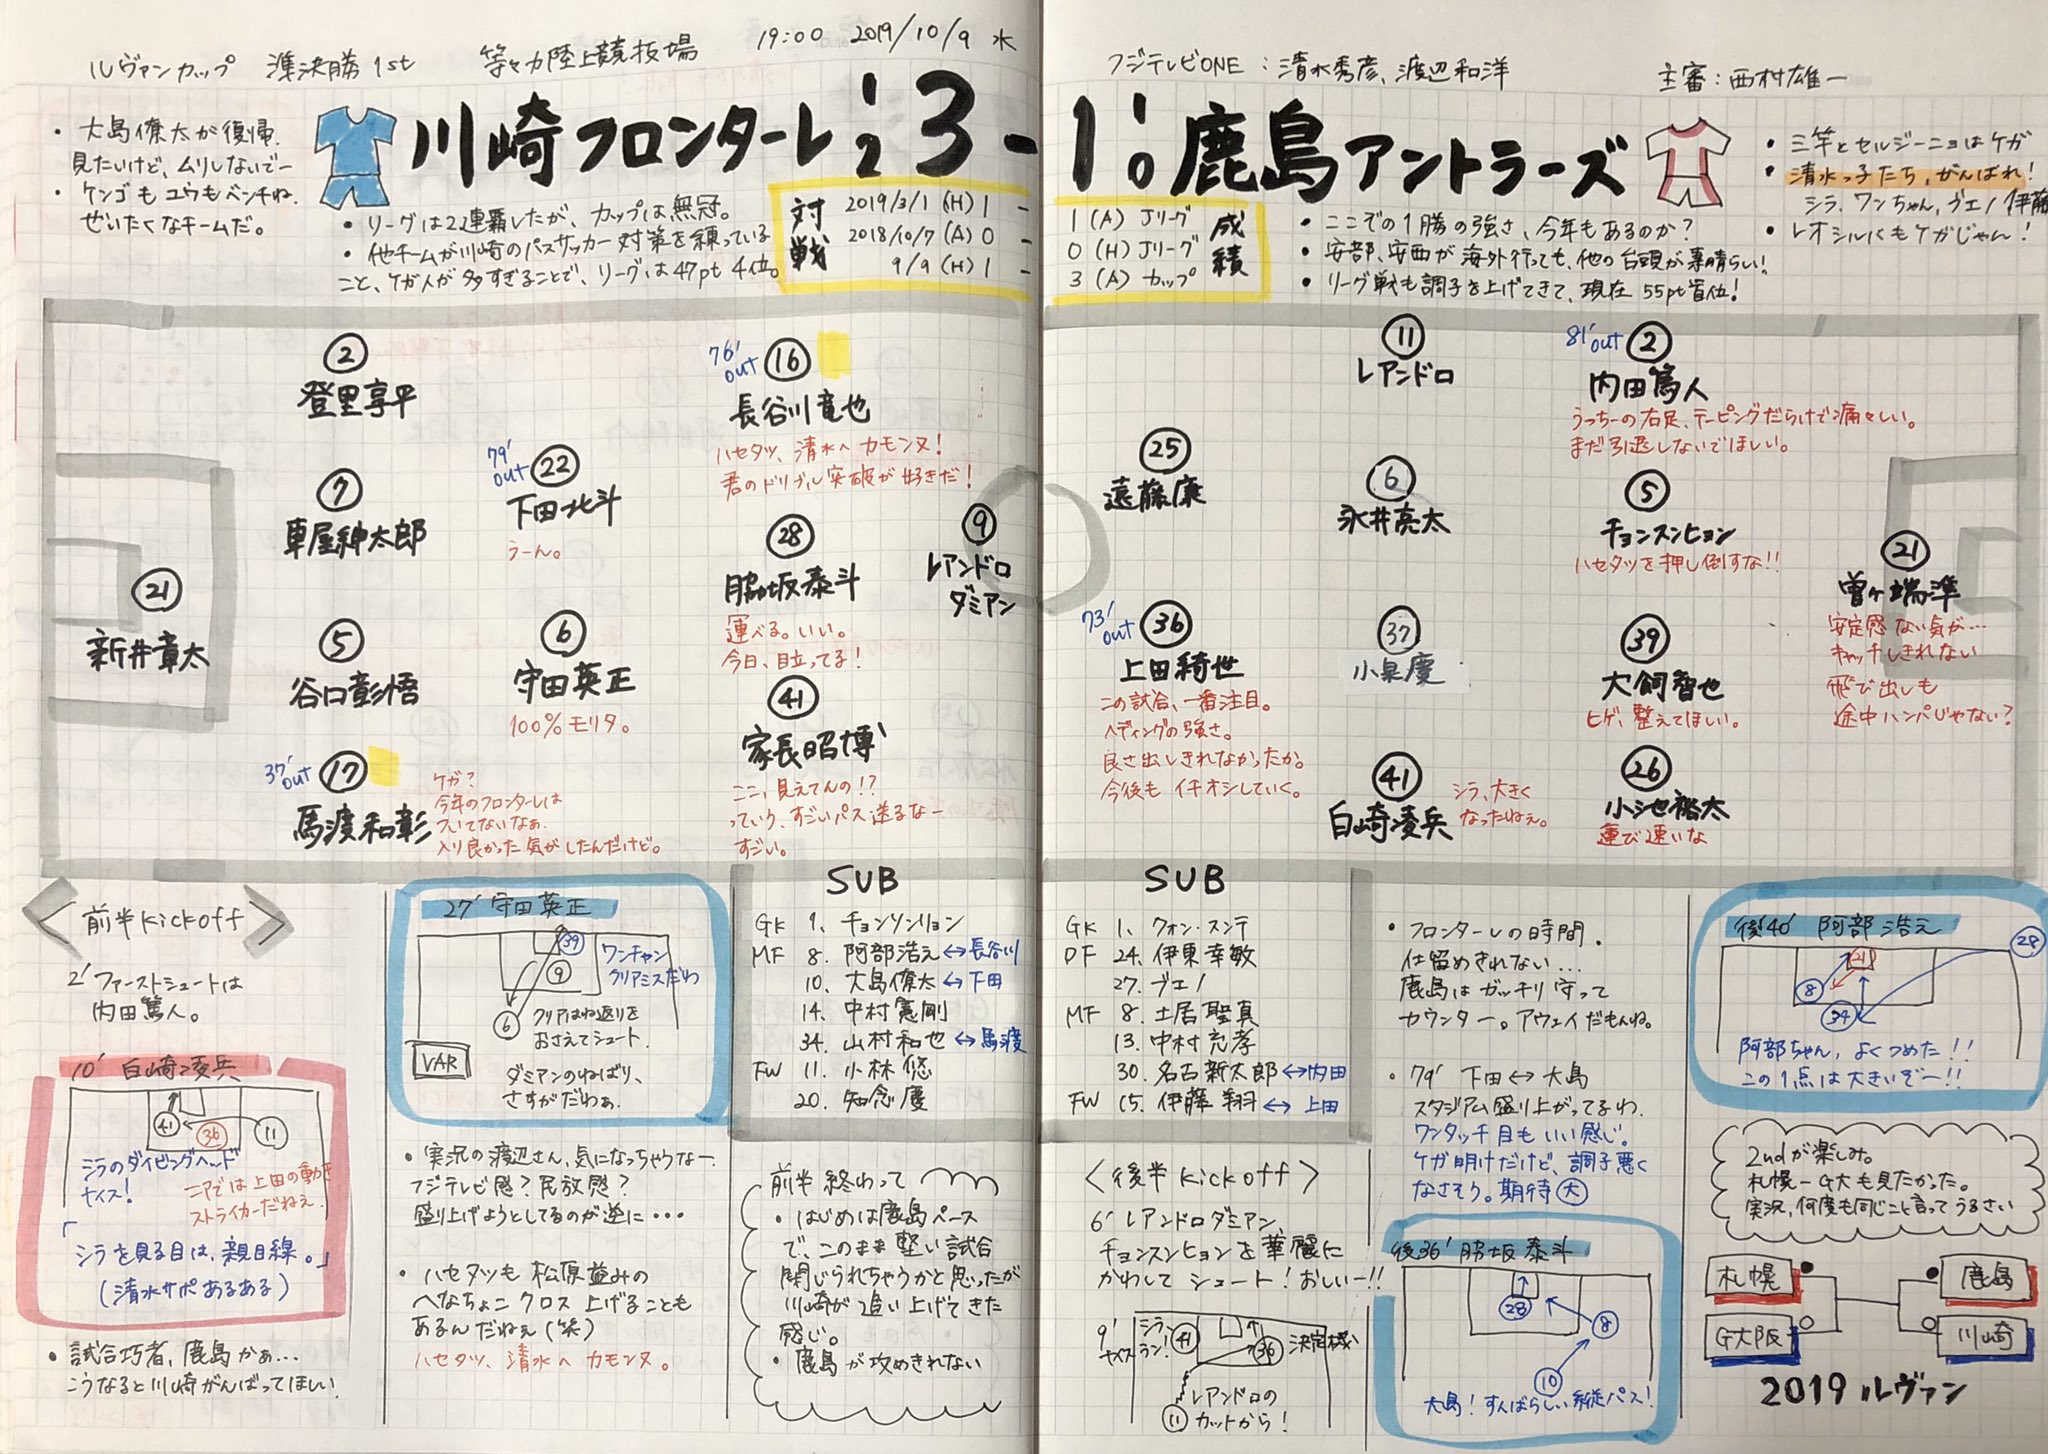 ルヴァンカップ 準決勝 1st 等々力陸上競技場 19:00 2019/10/9 水
フジテレビONE：清水秀彦、渡辺和洋 主審：西村雄一
・大島僚太が復帰.
見たいけど、ムリしないでー
・ケンゴもユウもベンチね.
ぜいたくなチームだ。
川崎フロンターレ 1 2 3 - 1 1 0 鹿島アントラーズ
・リーグは2連覇したが、カップは無冠。
・他チームが川崎のパスサッカー対策を練っている
こと、ケガ人が多すぎることで、リーグは47pt 4位。
対戦成績
2019/3/1 (H) 1 - 1 (A) Jリーグ
2018/10/7 (A) 0 - 0 (H) Jリーグ
9/9 (H) 1 - 3 (A) カップ
・ここでの1勝の強さ、今年もあるのか？
・安部、安西が海外行っても、他の台頭が素晴らしい！
・リーグ戦も調子を上げてきて、現在55pt首位！
・三竿とセルジーニョはケガ
・清水っ子たち、がんばれ！
シラ、ワンちゃん、ブエノ 伊藤
・レオシルバもケガじゃん！
2
登里享平
7
車屋紳太郎
21
新井章太
5
谷口彰悟
37' out 17
馬渡和彰
ケガ？
今年のフロンターレは
ついてないなぁ.
入り良かった気がしたんだけど。
79' out 22
下田北斗
うーん。
6
守田英正
100%モリタ。
76' out 16
長谷川竜也
ハセタツ、清水へカモンヌ！
君のドリブル突破が好きだ！
28
脇坂泰斗
運べる。いい。
今日、目立ってる！
41
家長昭博
ここ、見えてんの!?
っていう、すごいパス送るなー
すごい。
9
レアンドロ
ダミアン
11
レアンドロ
25
遠藤康
73' out 36
上田綺世
この試合、一番注目。
ヘディングの強さ。
良さ出しきれなかったか。
今後もイチオシしていく。
6
永井亮太
37
小泉慶
41
白崎凌兵
シラ、大きく
なったねぇ。
81' out 2
内田篤人
うっちーの右足、テーピングだらけで痛々しい。
まだ引退しないでほしい。
5
チョンスンヒョン
ハセタツを押し倒すな!!
39
犬飼智也
ヒゲ、整えてほしい。
26
小池裕太
運び速いな
21
曽ヶ端準
安定感ない気が…
キャッチしきれない
飛び出しも
途中ハンパじゃない？
＜前半kickoff＞
2' ファーストシュートは
内田篤人。
10' 白崎凌兵
41 36 11
シラのダイビングヘッド
ナイス！
ニアでは上田の動き
ストライカーだねぇ.
「シラを見る目は、親目線。」
(清水サポあるある)
・試合巧者、鹿島かぁ…
こうなると川崎がんばってほしい.
27' 守田英正
39 9 6
ワンチャン
クリアミスだわ
クリアはね返りを
おさえてシュート.
VAR
ダミアンのねばり、
さすがだわぁ.
・実況の渡辺さん、気になっちゃうなー.
フジテレビ感？民放感？
盛り上げようとしてるのが逆に・・・
・ハセタツも松原並みの
へなちょこクロス上げることも
あるんだねぇ(笑)
ハセタツ、清水へカモンヌ。
SUB
GK 1. チョンソンリョン
MF 8. 阿部浩之↔長谷川
10. 大島僚太↔下田
14. 中村憲剛
34. 山村和也↔馬渡
FW 11. 小林悠
20. 知念慶
前半終わって
・はじめは鹿島ペース
で、このまま堅い試合
閉じられちゃうかと思ったが
川崎が追い上げてきた
感じ。
・鹿島が攻めきれない
SUB
GK 1. クォン・スンテ
DF 24. 伊東幸敏
27. ブエノ
MF 8. 土居聖真
13. 中村充孝
30. 名古新太郎↔内田
FW 15. 伊藤翔↔上田
＜後半kickoff＞
6' レアンドロダミアン、
チョンスンヒョンを華麗に
かわしてシュート！おしいー!!
9' ナイス
シラ
ラン！
41 36 決定機
レアンドロの
11 カットから！
・フロンターレの時間.
仕留めきれない…
鹿島はガッチリ守って
カウンター。アウェイだもんね。
・79' 下田↔大島
スタジアム盛り上がってるわ.
ワンタッチ目もいい感じ。
ケガ明けだけど、調子悪く
なさそう。期待大
後36' 脇坂泰斗
28 8 10
大島！すんばらしい縦パス！
後40' 阿部浩之
28 21 8 34
阿部ちゃん、よくつめた!!
この1点は大きいぞー!!
2ndが楽しみ。
札幌－G大も見たかった。
実況、何度も同じこと言ってうるさい
札幌 鹿島
G大阪 川崎
2019 ルヴァン